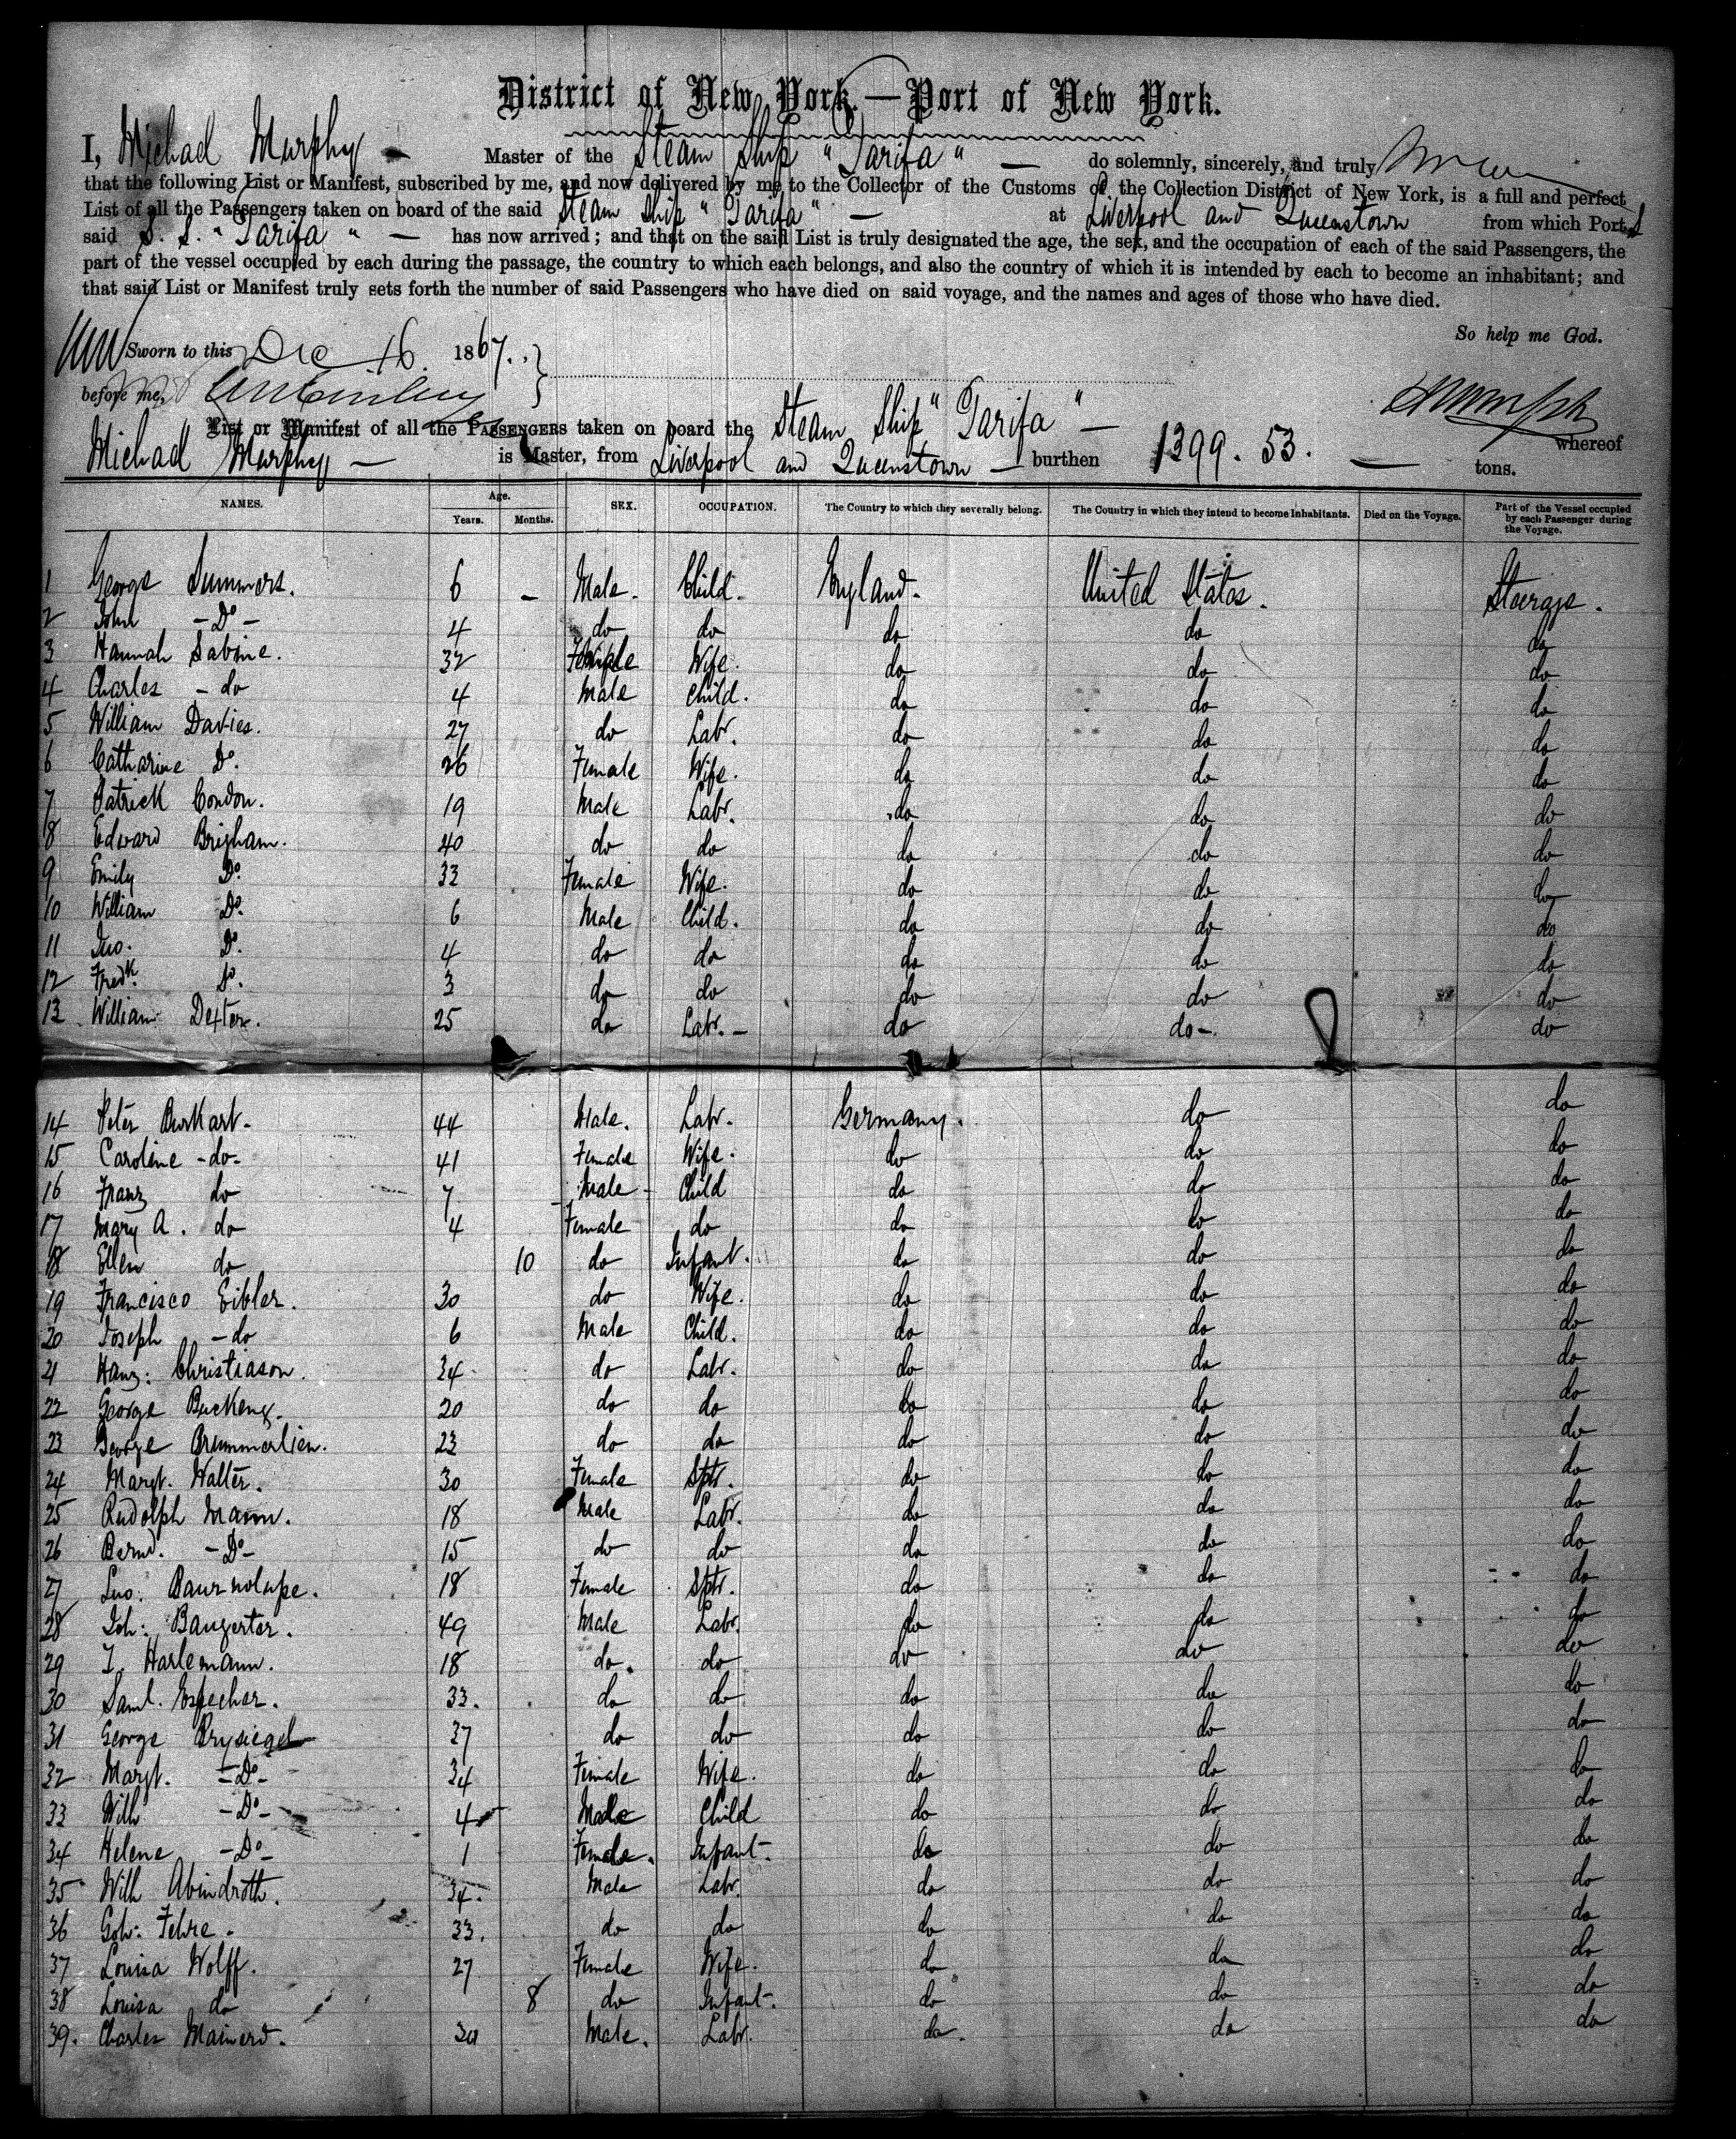 District of New York.—Port of New York.
I, Michael Murphy — Master of the Steam Ship "Tarifa" — do solemnly, sincerely, and truly
that the following List or Manifest, subscribed by me, and now delivered by me to the Collector of the Customs of the Collection District of New York, is a full and perfect
List of all the Passengers taken on board of the said Steam Ship "Tarifa" — at Liverpool and Queenstown from which Port s
said S. S. "Tarifa" — has now arrived; and that on the said List is truly designated the age, the sex, and the occupation of each of the said Passengers, the
part of the vessel occupied by each during the passage, the country to which each belongs, and also the country of which it is intended by each to become an inhabitant; and
that said List or Manifest truly sets forth the number of said Passengers who have died on said voyage, and the names and ages of those who have died.
So help me God.
Sworn to this Dec 16 1867.
before me,
List or Manifest of all the PASSENGERS taken on board the Steam Ship "Tarifa" — whereof
Michael Murphy — is Master, from Liverpool and Queenstown — burthen 1399. 53. — tons.
NAMES. Age. Years. Months. SEX. OCCUPATION. The Country to which they severally belong. The Country in which they intend to become Inhabitants. Died on the Voyage. Part of the Vessel occupied by each Passenger during the Voyage.
1 George Summers. 6 – Male. Child. England. United States. Steerage.
2 John – Do – 4 do do do do do
3 Hannah Sabine. 32 Female Wife. do do do
4 Charles – do 4 Male Child. do do do
5 William Davies. 27 do Labr. do do do
6 Catharine Do. 26 Female Wife. do do do
7 Patrick Condon. 19 Male Labr. do do do
8 Edward Brigham. 40 do do do do do
9 Emily Do. 33 Female Wife. do do do
10 William Do. 6 Male Child. do do do
11 Jno. Do. 4 do do do do do
12 Fredk. Do. 3 do do do do do
13 William Dexter. 25 do Labr. – do do –. do
14 Peter Burkart. 44 Male. Labr. Germany. do do
15 Caroline – do – 41 Female Wife. do do do
16 Franz do 7 Male – Child do do do
17 Mary A. do 4 Female do do do do
18 Ellen do 10 do Infant. do do do
19 Francisco Eibler. 30 do Wife. do do do
20 Joseph – do 6 Male Child. do do do
21 Hanz: Christiason. 34 do Labr. do do do
22 George Buckeng. 20 do do do do do
23 George Brummerlien. 23 do do do do do
24 Margt. Walter. 30 Female Sptr. do do do
25 Rudolph Mann. 18 Male Labr. do do do
26 Bernd. – Do – 15 do do do do do
27 18 Female Sptr. do do do
28 Joh: Bangerter. 49 Male Labr. do do do
29 I. Harlemann. 18 do. do do do do
30 Saml. Especher. 33. do do do do do
31 George Brysiegel 37 do do do do do
32 Margt. – Do – 34 Female Wife. do do do
33 Wilh – Do – 4 Male Child do do do
34 Helene – Do – 1 Female. Infant – do do do
35 Wilh Abindroth. 34. Male Labr. do do do
36 Gob: Fehre. 33. do do do do do
37 Louisa Wolff. 27 Female Wife. do do do
38 Louisa do 8 do Infant –. do do do
39. Charles Mainerd. Male. Labr. do. do do